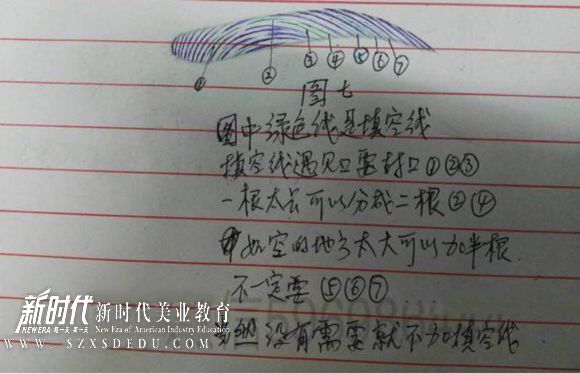 ① ② ③ ④ ⑤ ⑥ ⑦
图七
图中绿色线是填空线
填空线遇见口要封口①②③
一根太长可以分成二根③④
如空的地方太大可以加半根
不一定要⑤⑥⑦
当然没有需要就不加填空线
新时代 新时代美业教育
NEWERA 每一天 第一天 New Era of American Industry Education
WWW.SZXSDEDU.COM